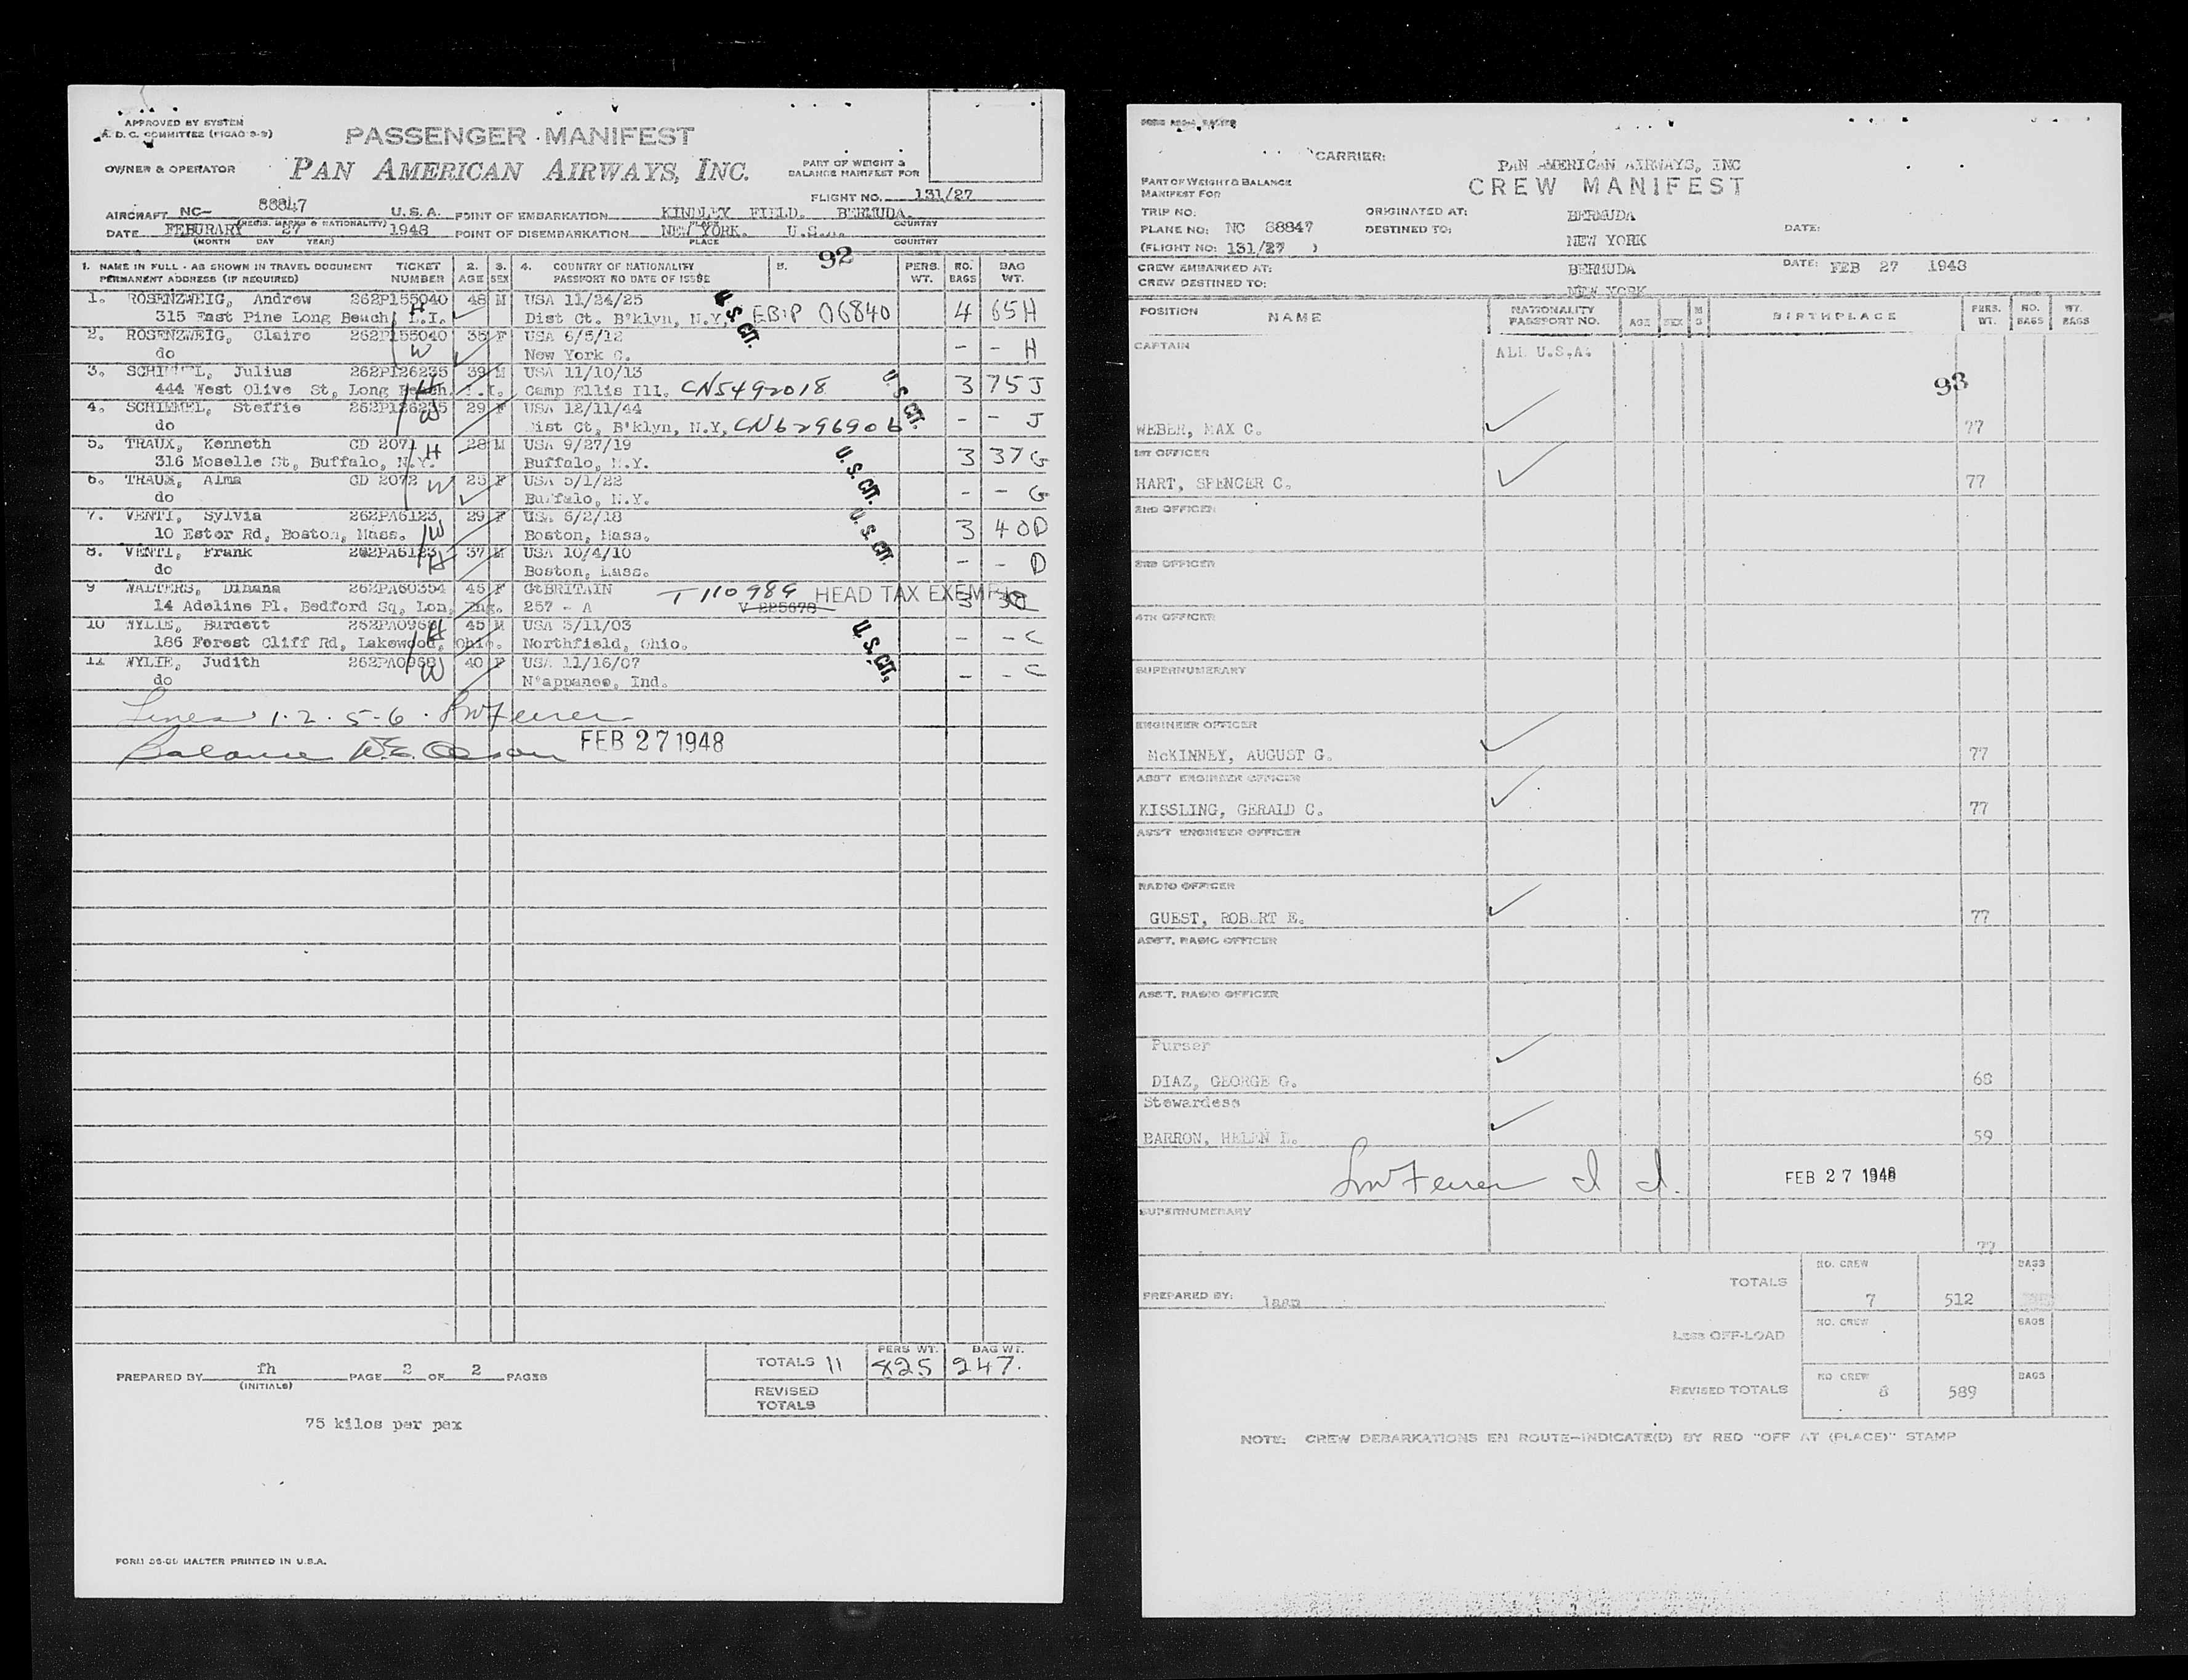 APPROVED BY SYSTEM
A. D. C. COMMITTEE (FICAO 9-9)
PASSENGER MANIFEST
OWNER & OPERATOR
PAN AMERICAN AIRWAYS, INC.
PART OF WEIGHT &
BALANCE MANIFEST FOR
FLIGHT NO. 131/27
AIRCRAFT NC- 88847 U.S.A. POINT OF EMBARKATION KINDLEY FIELD. BERMUDA.
(REGIS. MARKS & NATIONALITY) COUNTRY
DATE FEBURARY 27 1948 POINT OF DISEMBARKATION NEW YORK. U.S.A.
(MONTH DAY YEAR) PLACE COUNTRY
92
1. NAME IN FULL - AS SHOWN IN TRAVEL DOCUMENT TICKET 2. 3. 4. COUNTRY OF NATIONALITY 5. PERS. NO. BAG
PERMANENT ADDRESS (IF REQUIRED) NUMBER AGE SEX PASSPORT NO DATE OF ISSUE WT. BAGS WT.
1. ROSENZWEIG, Andrew 262P155040 48 M USA 11/24/25
315 East Pine Long Beach, L.I. H Dist Ct. B'klyn, N.Y. U.S. CIT. EBIP 06840 4 65 H
2. ROSENZWEIG, Claire 262P155040 35 F USA 6/5/12
do W New York C. - - H
3. SCHIMMEL, Julius 262P126235 39 M USA 11/10/13
444 West Olive St, Long Beach. L.I. H Camp Ellis Ill. CN5492018 U.S. CIT. 3 75 J
4. SCHIMMEL, Steffie 262P126235 29 F USA 12/11/44
do W Dist Ct, B'klyn, N.Y, CN6296906 - - J
5. TRAUX, Kenneth CD 2071 28 M USA 9/27/19
316 Moselle St, Buffalo, N.Y. H Buffalo, N.Y. U.S. CIT. 3 37 G
6. TRAUX, Alma CD 2072 25 F USA 5/1/22
do W Buffalo, N.Y. - - G
7. VENTI, Sylvia 262PA6123 29 F USA 6/2/18
10 Ester Rd, Boston, Mass. W Boston, Mass. U.S. CIT. 3 40 D
8. VENTI, Frank 262PA6123 37 M USA 10/4/10
do H Boston, Mass. - - D
9 WALTERS, Dihana 262PA60354 45 F GtBRITAIN T110989 HEAD TAX EXEMPT
14 Adeline Pl. Bedford Sq, Lon, Eng. 257 - A V 225678 3 30
10 WYLIE, Burdett 262PA0968 45 M USA 5/11/03
186 Forest Cliff Rd, Lakewood, Ohio. H Northfield, Ohio. U.S. CIT. - - C
11 WYLIE, Judith 262PA0968 40 F USA 11/16/07
do W N'appanee, Ind. - - C
Lines 1-2-5-6.
Balance
FEB 27 1948
TOTALS 11 PERS WT. 825 BAG WT. 247.
REVISED
TOTALS
PREPARED BY fh PAGE 2 OF 2 PAGES
(INITIALS)
75 kilos per pax
PRINTED IN U.S.A.
CARRIER: PAN AMERICAN AIRWAYS, INC
CREW MANIFEST
PART OF WEIGHT & BALANCE
MANIFEST FOR
TRIP NO. ORIGINATED AT: BERMUDA
PLANE NO: NC 88847 DESTINED TO: NEW YORK DATE:
(FLIGHT NO: 131/27 )
CREW EMBARKED AT: BERMUDA DATE: FEB 27 1948
CREW DESTINED TO: NEW YORK
POSITION NAME NATIONALITY PASSPORT NO. AGE SEX M S BIRTHPLACE PERS. WT. NO. BAGS WT. BAGS
CAPTAIN ALL U.S.A.
93
WEBER, MAX C. 77
1ST OFFICER
HART, SPENCER C. 77
2ND OFFICER
3RD OFFICER
4TH OFFICER
SUPERNUMERARY
ENGINEER OFFICER
McKINNEY, AUGUST G. 77
ASS'T ENGINEER OFFICER
KISSLING, GERALD C. 77
ASS'T ENGINEER OFFICER
RADIO OFFICER
GUEST, ROBERT E. 77
ASS'T. RADIO OFFICER
ASS'T. RADIO OFFICER
Purser
DIAZ, GEORGE G. 68
Stewardess
BARRON, HELEN L. 59
FEB 27 1948
SUPERNUMERARY
77
TOTALS NO. CREW 7 512 BAGS
PREPARED BY:
LESS OFF-LOAD NO. CREW BAGS
REVISED TOTALS NO CREW 8 589 BAGS
NOTE: CREW DEBARKATIONS EN ROUTE-INDICATE(D) BY RED "OFF AT (PLACE)" STAMP